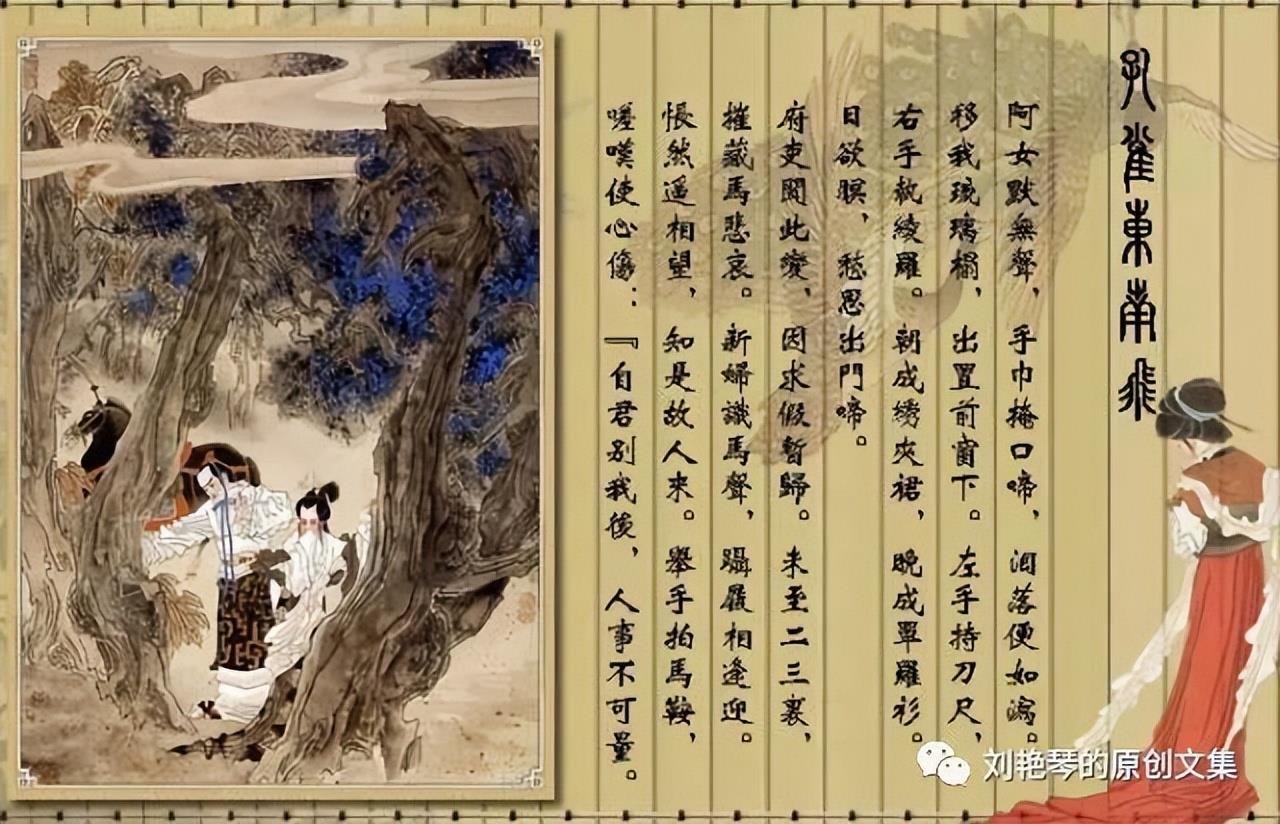 孔雀東南飛
阿女默無聲，手巾掩口啼，淚落便如瀉。
移我琉璃榻，出置前窗下。左手持刀尺，
右手執綾羅。朝成绣夾裙，晚成單羅衫。
日欲暝，愁思出門啼。
府吏聞此變，因求假暫歸。未至二三裏，
摧藏馬悲哀。新婦識馬聲，躡履相逢迎。
悵然遥相望，知是故人来。舉手拍馬鞍，
嗟嘆使心傷：『自君别我後，人事不可量。
刘艳琴的原创文集